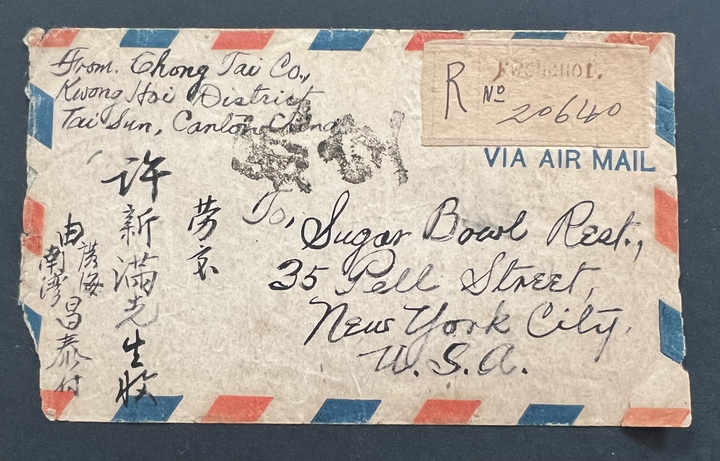 From. Chong Tai Co.,
Kwong Hoi District
Tai Sun, Canton China
R
Nº
20640
VIA AIR MAIL
To,
Sugar Bowl Rest.,
35 Pell Street,
New York City.
U.S.A.
勞交
許新滿先生收
由廣海
南灣
昌泰付